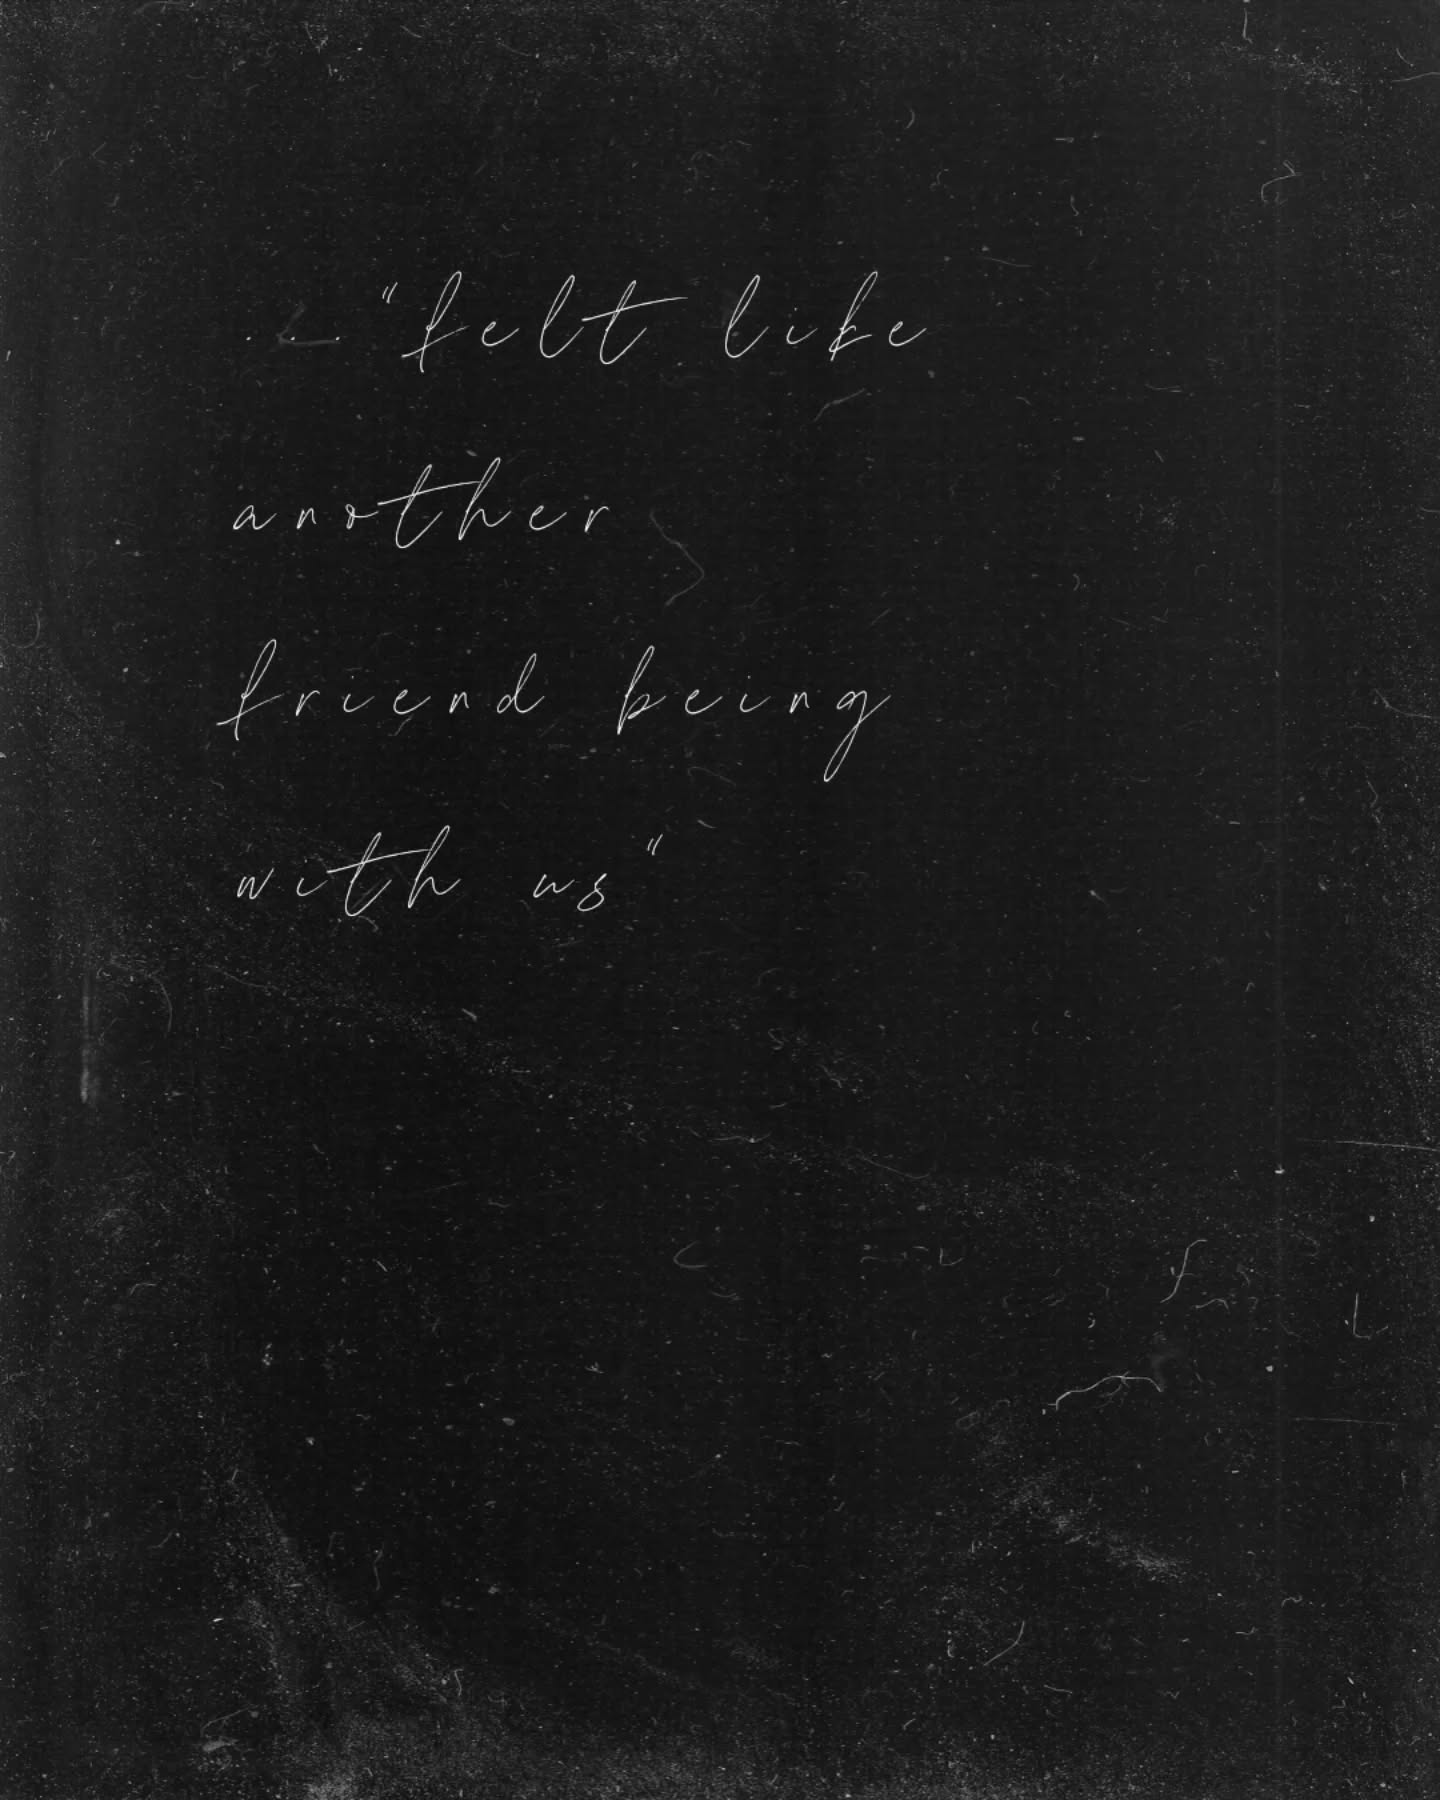 ... "felt like
another
friend being
with us"